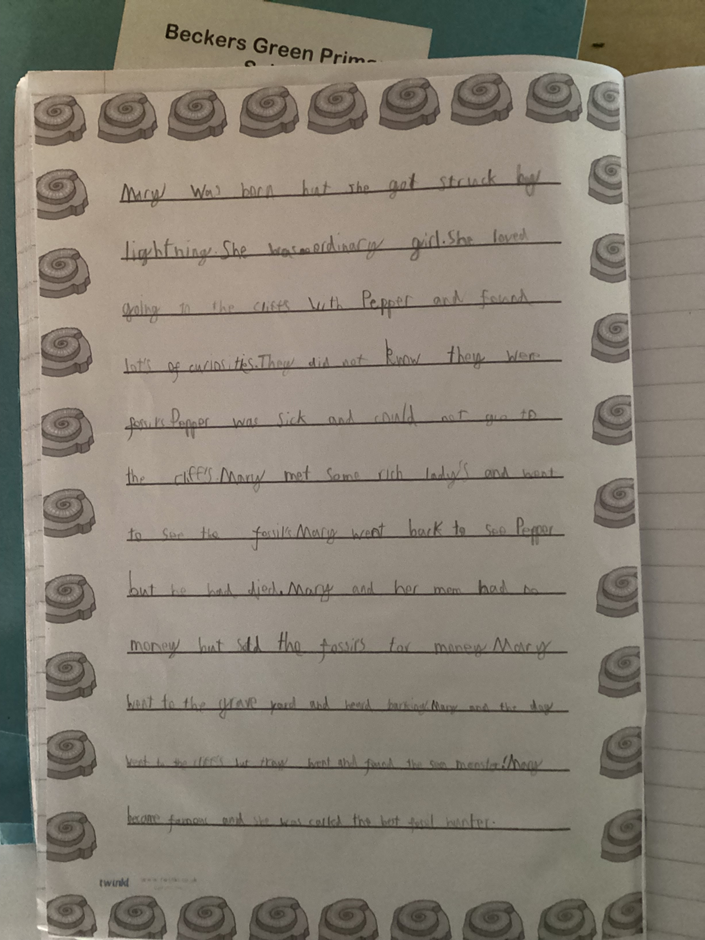 Beckers Green Prima
Mary was born but she got struck by
lightning. She was ordinary girl. She loved
going to the cliffs with Pepper and found
lot's of curiosities. They did not know they were
fossils Pepper was sick and could not goe to
the cliff's. Mary met some rich lady's and went
to see the fossil's Mary went back to see Pepper
but he had died. Mary and her mom had no
money but sold the fossirs for money Mary
went to the grave yard and heard barking Mary and the dog
went to the cliffs but they went and found the sea monster! Mary
became famous and she was called the best fossil hunter.
twinkl